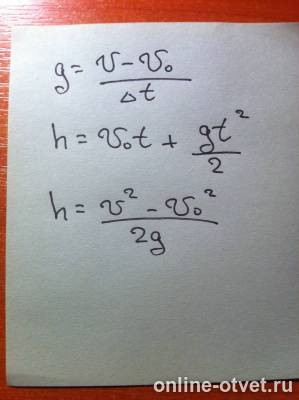 g = v - v₀ / Δt
h = v₀t + gt² / 2
h = v² - v₀² / 2g
online-otvet.ru